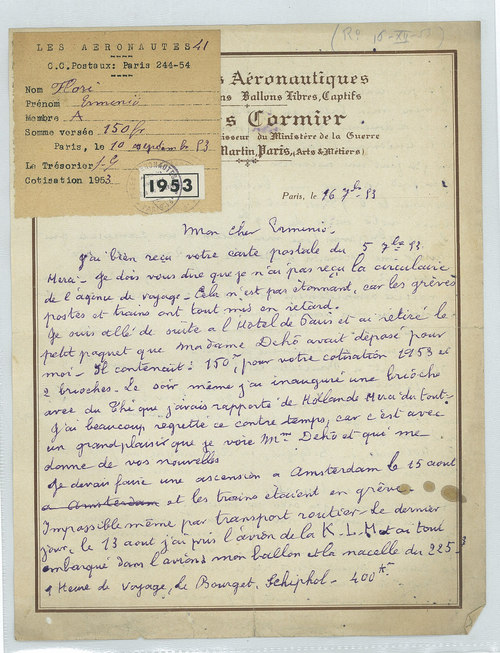 LES AERONAUTES 41
C.C.Postaux: Paris 244-54
Nom Flori
Prénom Erminio
Membre A
Somme versée 150 fr
Paris, le 10 septembre 53
Le Trésorier
Cotisation 1953
1953
(R° 18-XII-53)
s Aéronautiques
ns Ballons Libres, Captifs
s Cormier
isseur du Ministère de la Guerre
Martin, Paris, (Arts & Métiers)
Paris, le 16 7bre 53
Mon cher Erminio.
J'ai bien reçu votre carte postale du 5 7bre 53.
Merci - Je dois vous dire que je n'ai pas reçu la circulaire
de l'agence de voyage - Cela n'est pas étonnant, car les grèves
postes et trains ont tout mis en retard.
Je suis allé de suite a l'Hotel de Paris et ai retiré le
petit paquet que Madame Dehô avait déposé pour
moi - Il contenait : 150 pour votre cotisation 1953 et
2 brioches. Le soir même j'ai inauguré une brioche
avec du Thé que j'avais rapporté de Hollande Merci du tout -
J'ai beaucoup regretté ce contre temps, car c'est avec
un grand plaisir que je voie Mme Dehô et qui me
donne de vos nouvelles
Je devais faire une ascension a Amsterdam le 15 aout
a Amsterdam et les trains étaient en grève.
Impossible même par transport routier - Le dernier
jour, le 13 aout j'ai pris l'avion de la K.L.M et ai tout
embarqué dans l'avion, mon ballon et la nacelle du 225
Heure de voyage, Le Bourget, Schiphol - 400 K